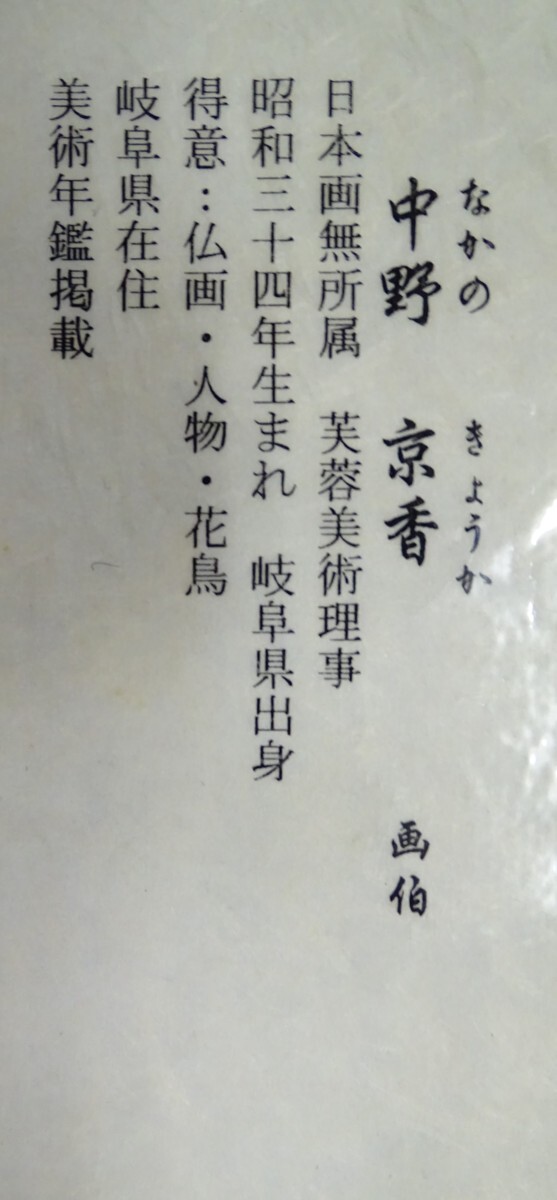 なかの　きょうか
中野　京香　画伯
日本画無所属　芙蓉美術理事
昭和三十四年生まれ　岐阜県出身
得意：仏画・人物・花鳥
岐阜県在住
美術年鑑掲載